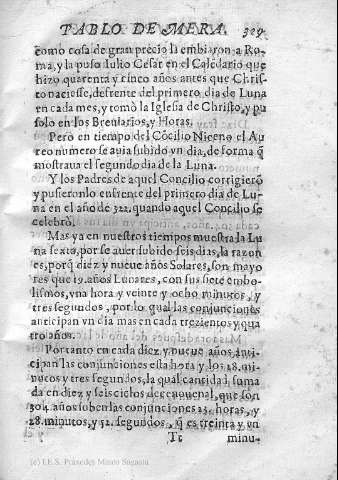 TABLO DE MERA. 329
como cosa de gran precio la embiaron a Ro-
ma, y la puso Iulio Cesar en el Calēdario que
hizo quarenta y cinco años antes que Chris-
to naciesse, defrente del primero dia de Luna
en cada mes, y tomò la Iglesia de Christo, y pu
solo en los Breuiarios, y Horas.
Pero en tiempo del Cōcilio Niceno el Au
reo numero se auia subido vn dia, de forma q̄
mostraua el segundo dia de la Luna.
Y los Padres de aquel Concilio corrigierō
y pusieronlo enfrente del primero dia de Lu-
na en el año de 322, quando aquel Concilio se
celebrò.
Mas ya en nuestros tiempos muestra la Lu
na sexto, por se auer subido seis dias, la razon
es, porq̄ diez y nueue años Solares, son mayo
res que 19. años Lunares, con sus siete embo-
lismos, vna hora y veinte y ocho minutos, y
tres segundos, por lo qual las conjunciones
anticipan vn dia mas en cada trezientos y qua
tro años.
Portanto en cada diez y nueue años, anti-
cipan las conjunciones esta hora y los 28. mi-
nutos y tres segundos, la qual cantidad suma
da en diez y seis ciclos decenouenal, que son
304. años suben las conjunciones 23. horas, y
28. minutos, y 52. segundos, q̄ es treinta y un
Tt minu-
(c) I.E.S. Práxedes Mateo Sagasta